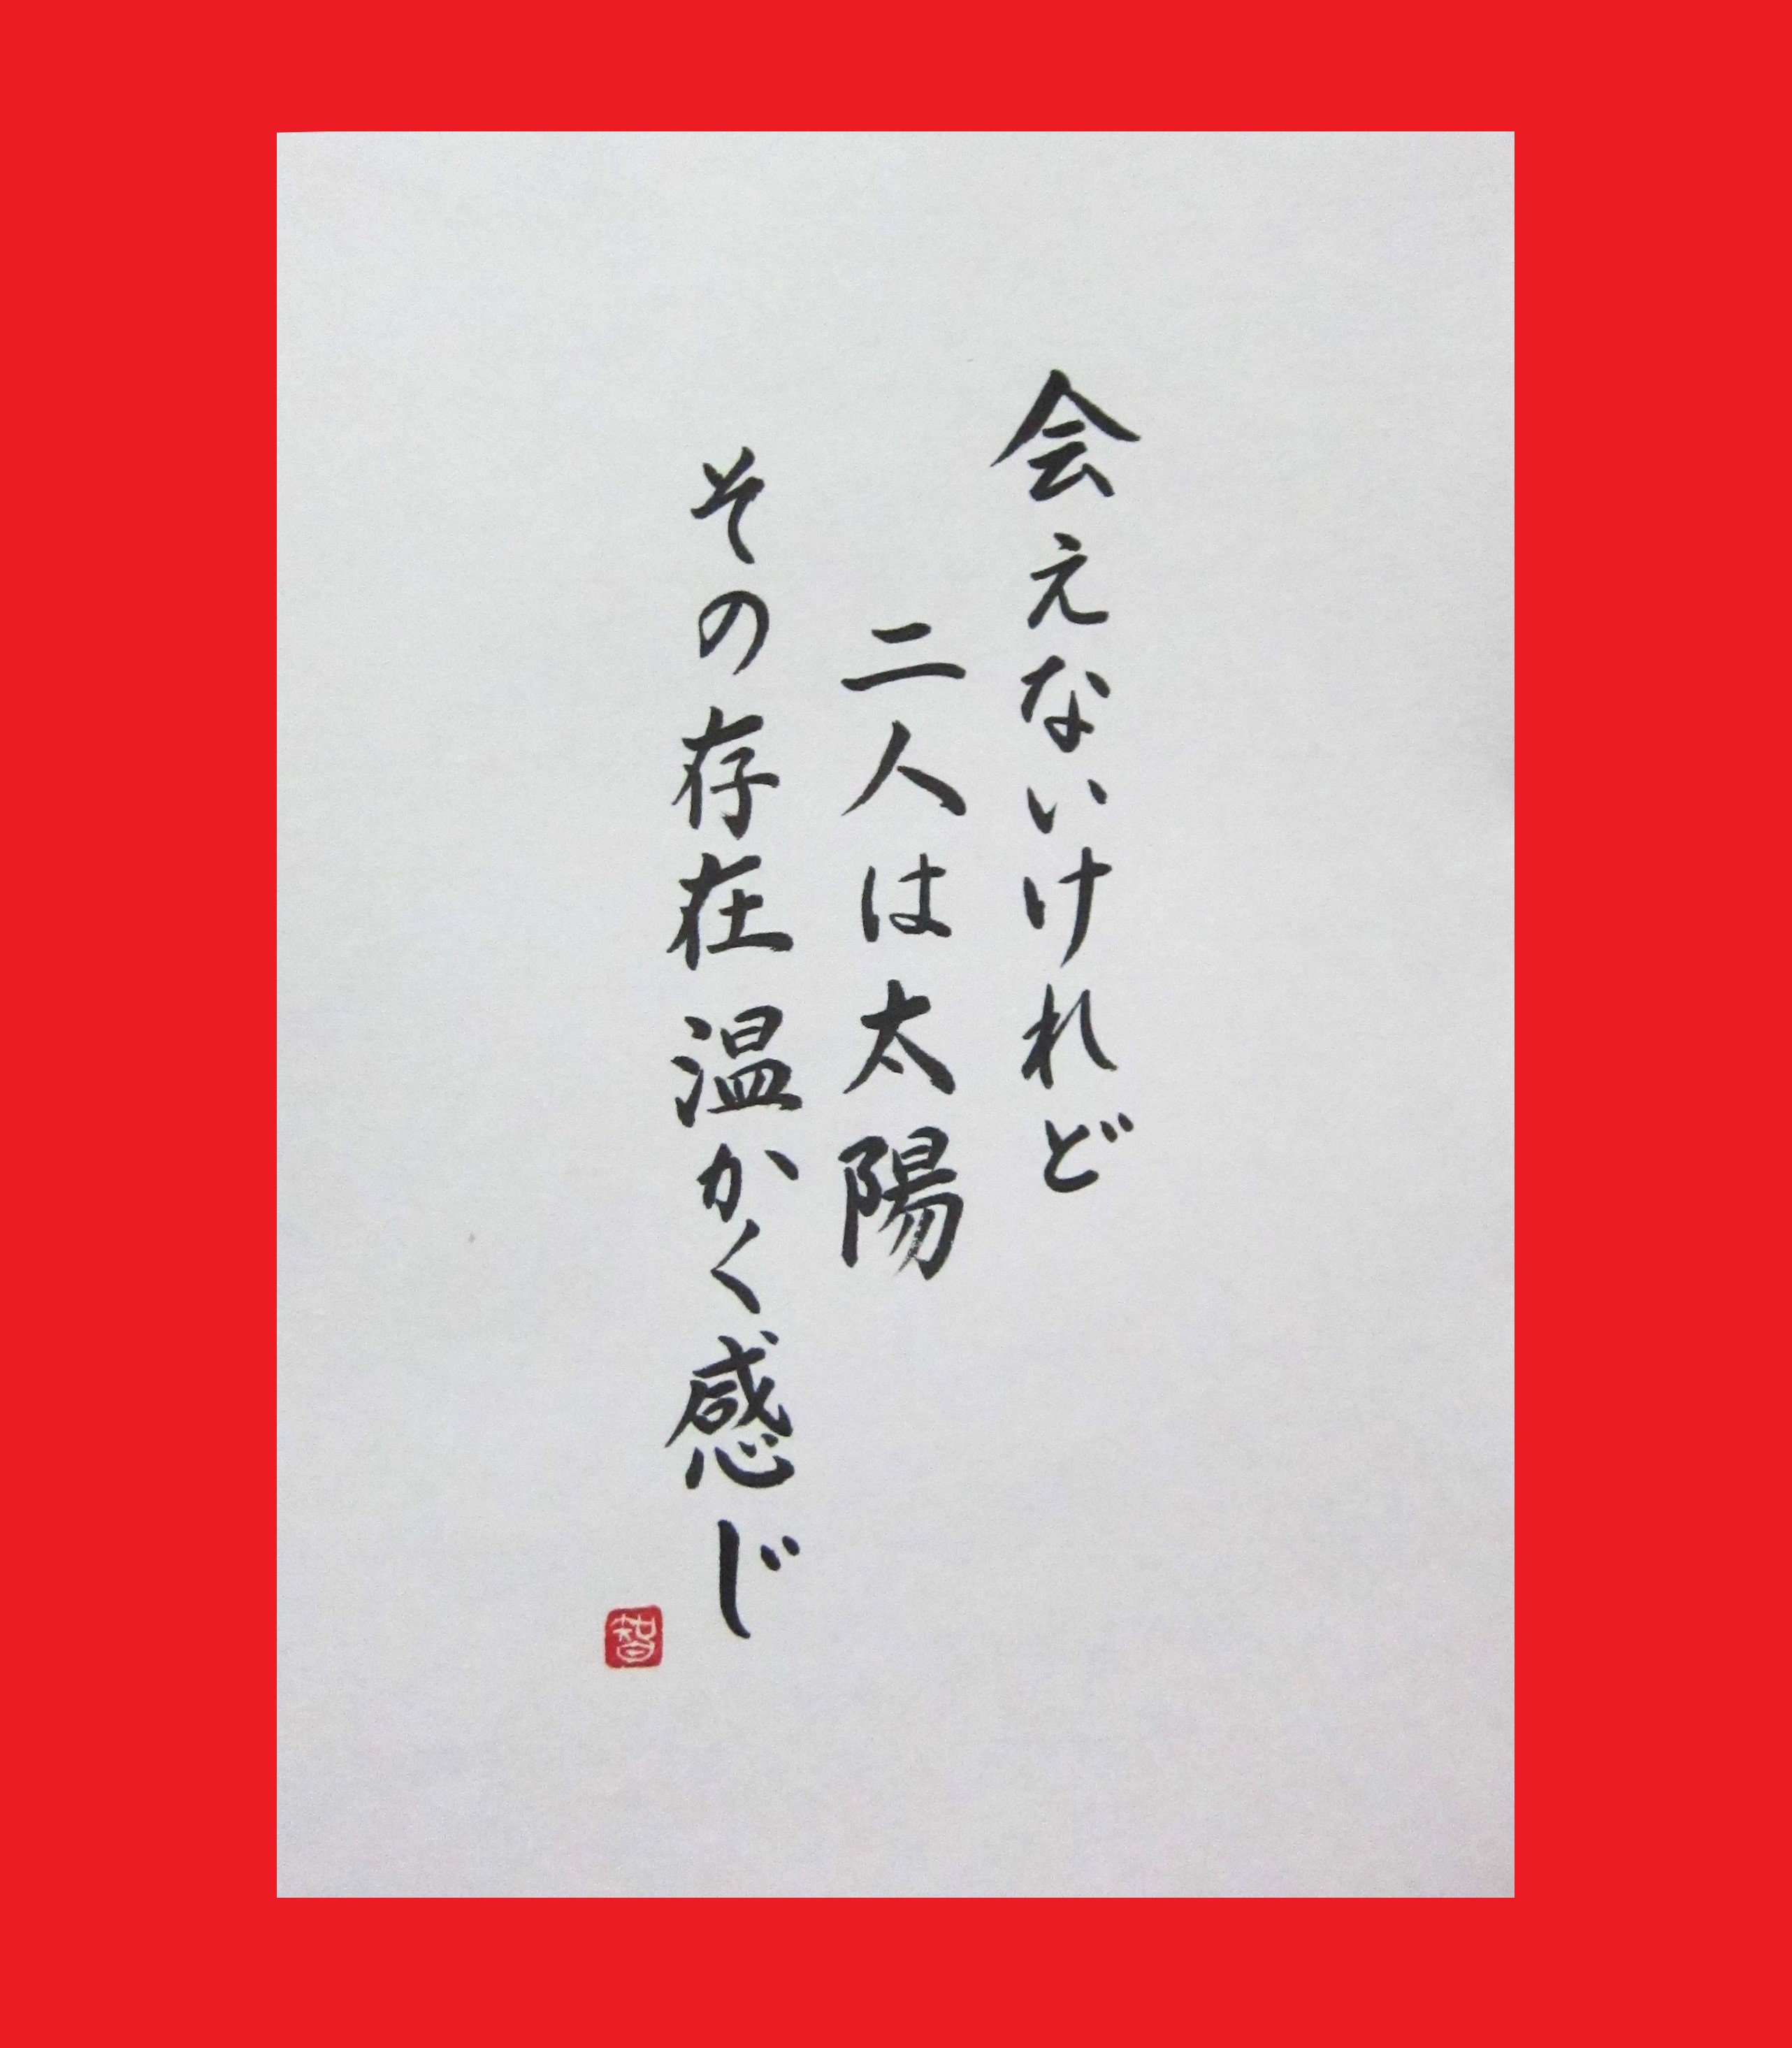 会えないけれど
二人は太陽
その存在温かく感じ
智